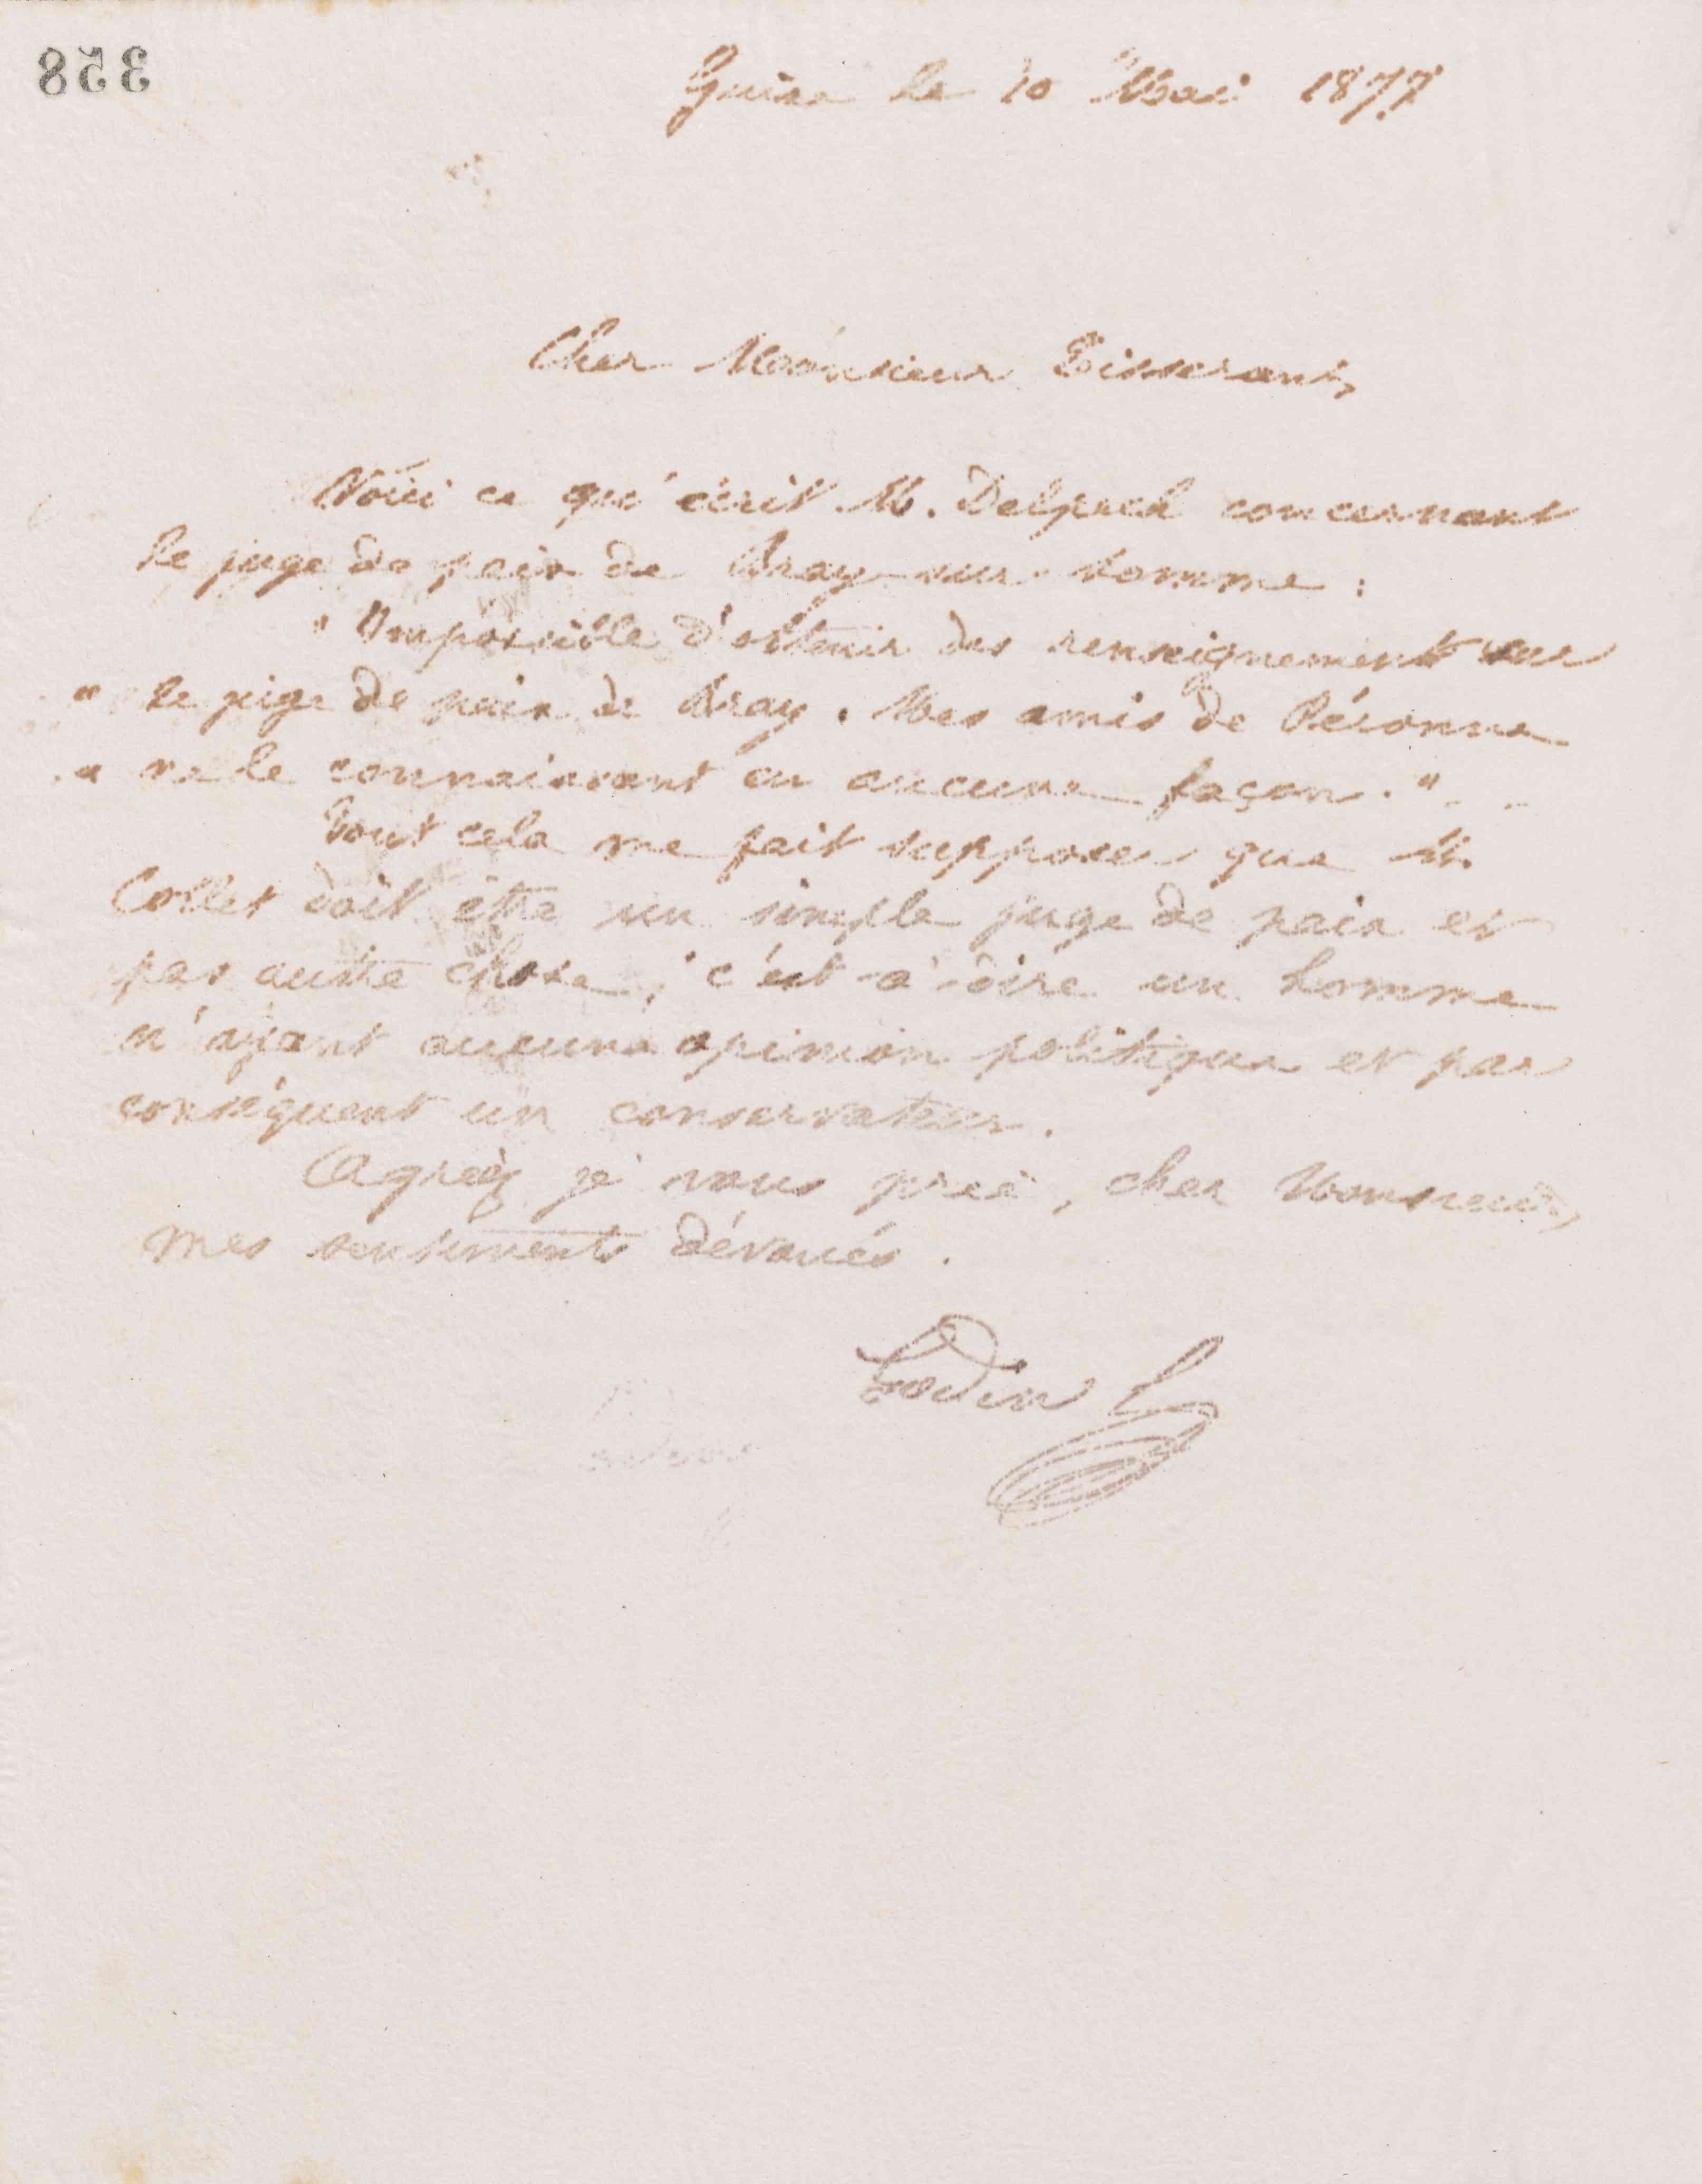 358
Guise le 10 Mai 1877
Cher Monsieur Tisserant,
Voici ce qu'écrit M. Delpech concernant
le juge de paix de Bray-sur-Somme :
" Impossible d'obtenir des renseignements sur
" le juge de paix de Bray. Mes amis de Péronne
" ne le connaissent en aucune façon. "
Tout cela me fait supposer que M.
Collet doit être un simple juge de paix et
pas autre chose, c'est-à-dire un homme
n'ayant aucune opinion politique et par
conséquent un conservateur.
Agréez je vous prie, cher Monsieur,
mes sentiments dévoués.
Godin